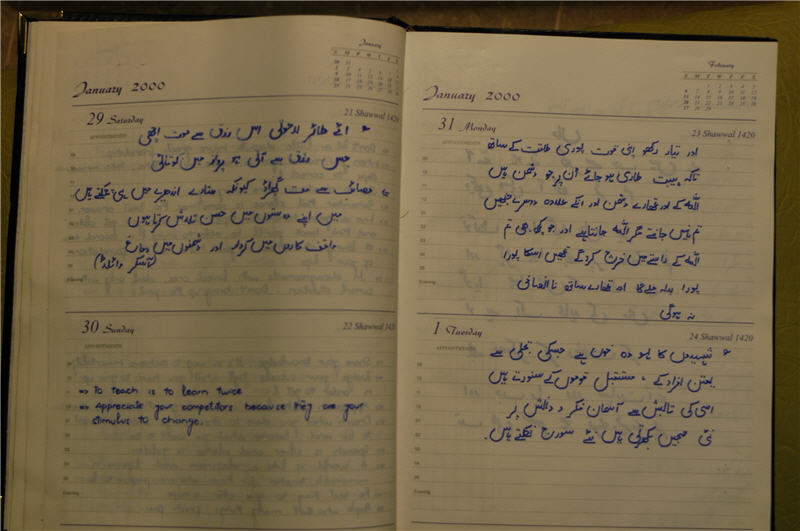 January
S M T W T F S
January 2000
29 Saturday
21 Shawwal 1420
APPOINTMENTS
اے طائر لاہوتی اس رزق سے موت اچھی
جس رزق سے آتی ہو پرواز میں کوتاہی
مصائب سے مت گھبراؤ کیونکہ ستارے اندھیرے میں ہی چمکتے ہیں
میں اپنے دوستوں میں حسن تلاش کرتا ہوں
واقف کاروں میں کردار اور دشمنوں میں دماغ
آسکر وائلڈ
30 Sunday
22 Shawwal 1420
APPOINTMENTS
⇒ To teach is to learn twice
⇒ Appreciate your competitors because they are your
stimulus to change.
Evening
February
S M T W T F S
January 2000
31 Monday
23 Shawwal 1420
APPOINTMENTS
اور تیار رکھو اپنی قوت پوری طاقت کے ساتھ
تاکہ ہیبت طاری ہو جائے ان پر جو دشمن ہیں
اللہ کے اور تمھارے دشمن اور انکے علاوہ دوسرے جنھیں
تم نہیں جانتے مگر اللہ جانتا ہے اور جو کچھ بھی تم
اللہ کے راستے میں خرچ کرو گے تمھیں اسکا پورا
پورا بدلہ ملے گا اور تمھارے ساتھ ناانصافی
نہ ہوگی
Evening
1 Tuesday
24 Shawwal 1420
APPOINTMENTS
شہیدوں کا لہو وہ نور ہے جسکی تجلی سے
یقین افراد کے، مستقبل قوموں کے سنورتے ہیں
اسی کی تابش سے آسمان فکر و دانش پر
نئی صبحیں نکھرتی ہیں نئے سورج نکلتے ہیں۔
Evening